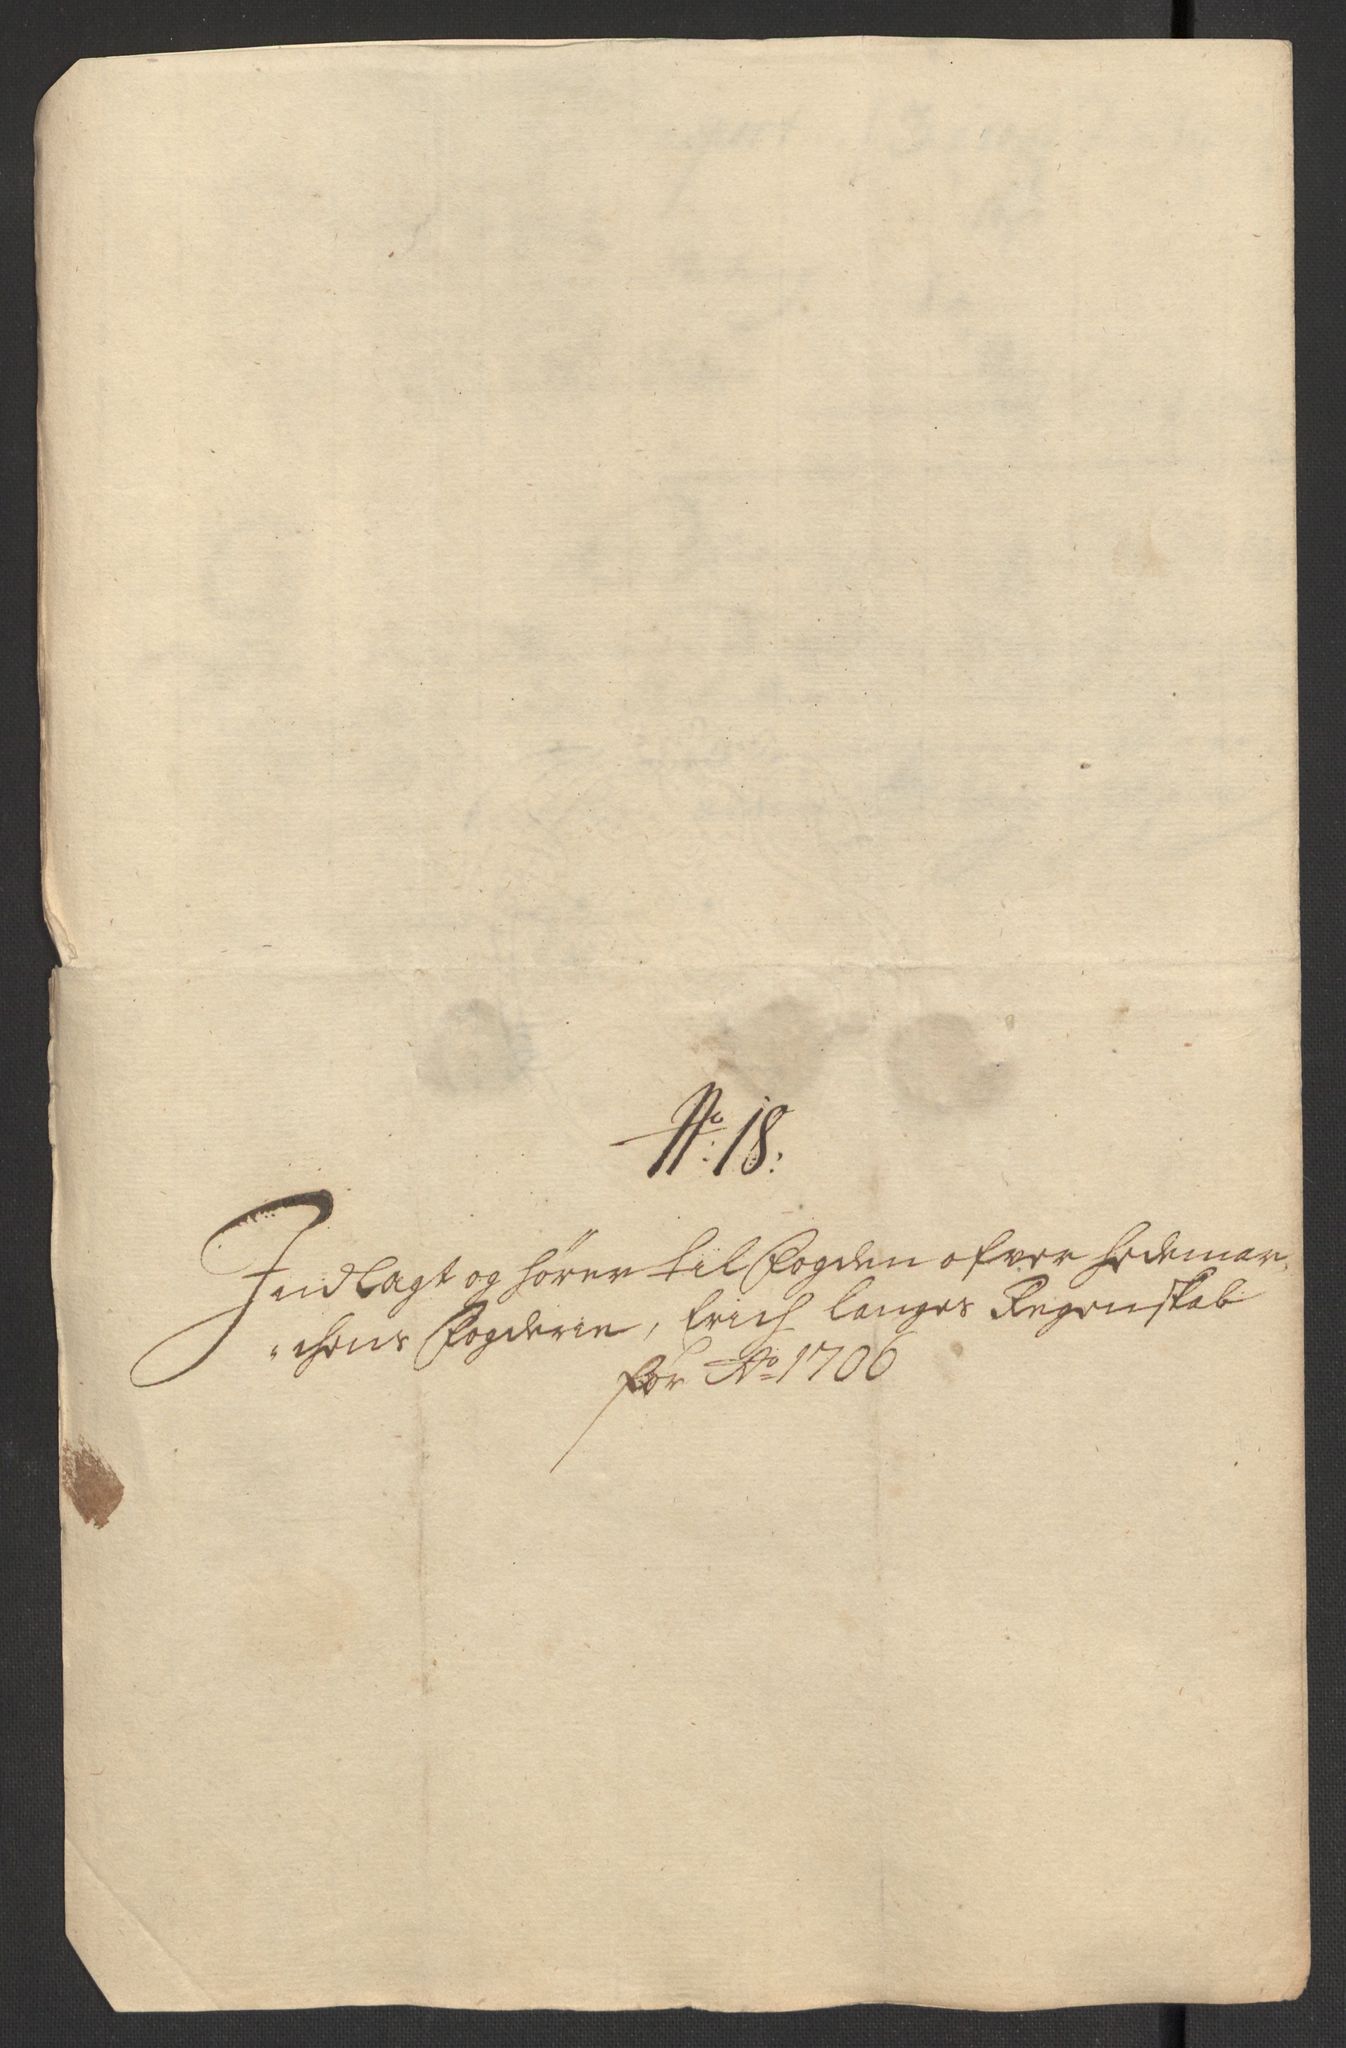 No: 18:
Indlagt og hører til Fogden ofver Hedemar„
„chens Fogderie, Erich Langes Regenskab
for Ao 1706